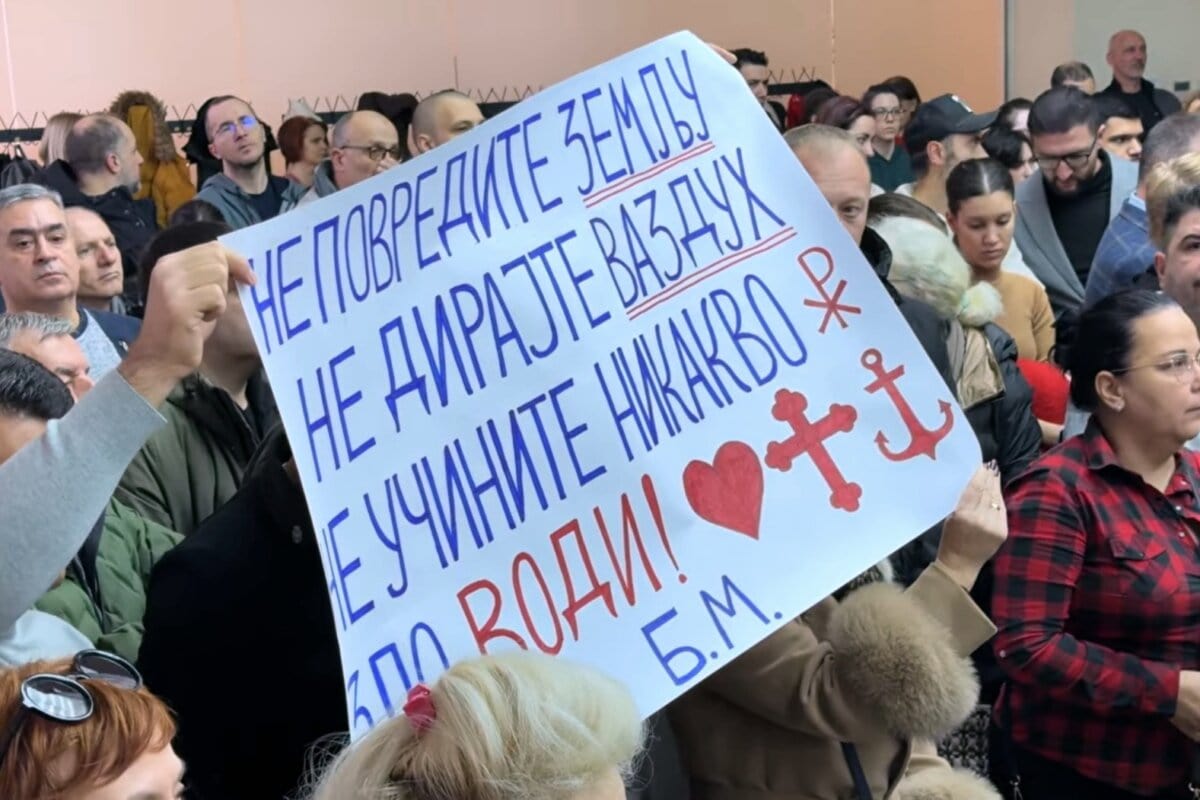 НЕ ПОВРЕДИТЕ ЗЕМЉУ
НЕ ДИРАЈТЕ ВАЗДУХ
НЕ УЧИНИТЕ НИКАКВО
ЗЛО ВОДИ!
Б.М.